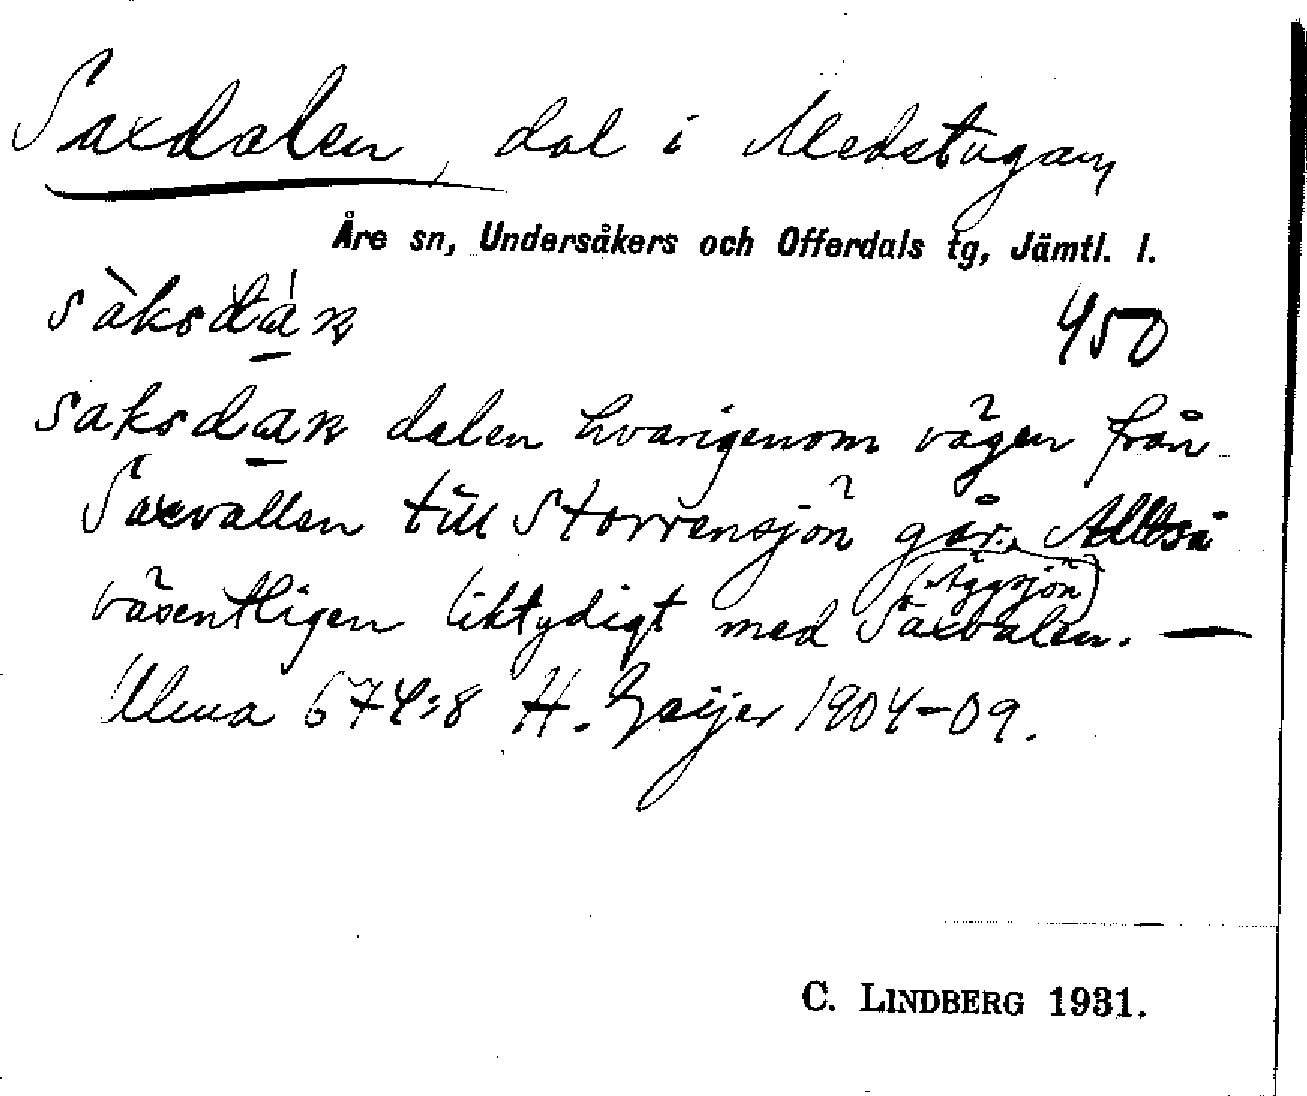 Saxdalen, dal i Medstugan,
Åre sn, Undersåkers och Offerdals tg, Jämtl. l.
sàksdán
450
saksdan dalen hvarigenom vägen från
Saxvallen till Storrensjön går. Alltså
väsentligen liktydigt med Saxvalen. —
Ulma 674:8 H. Geijer 1904-09.
C. LINDBERG 1931.